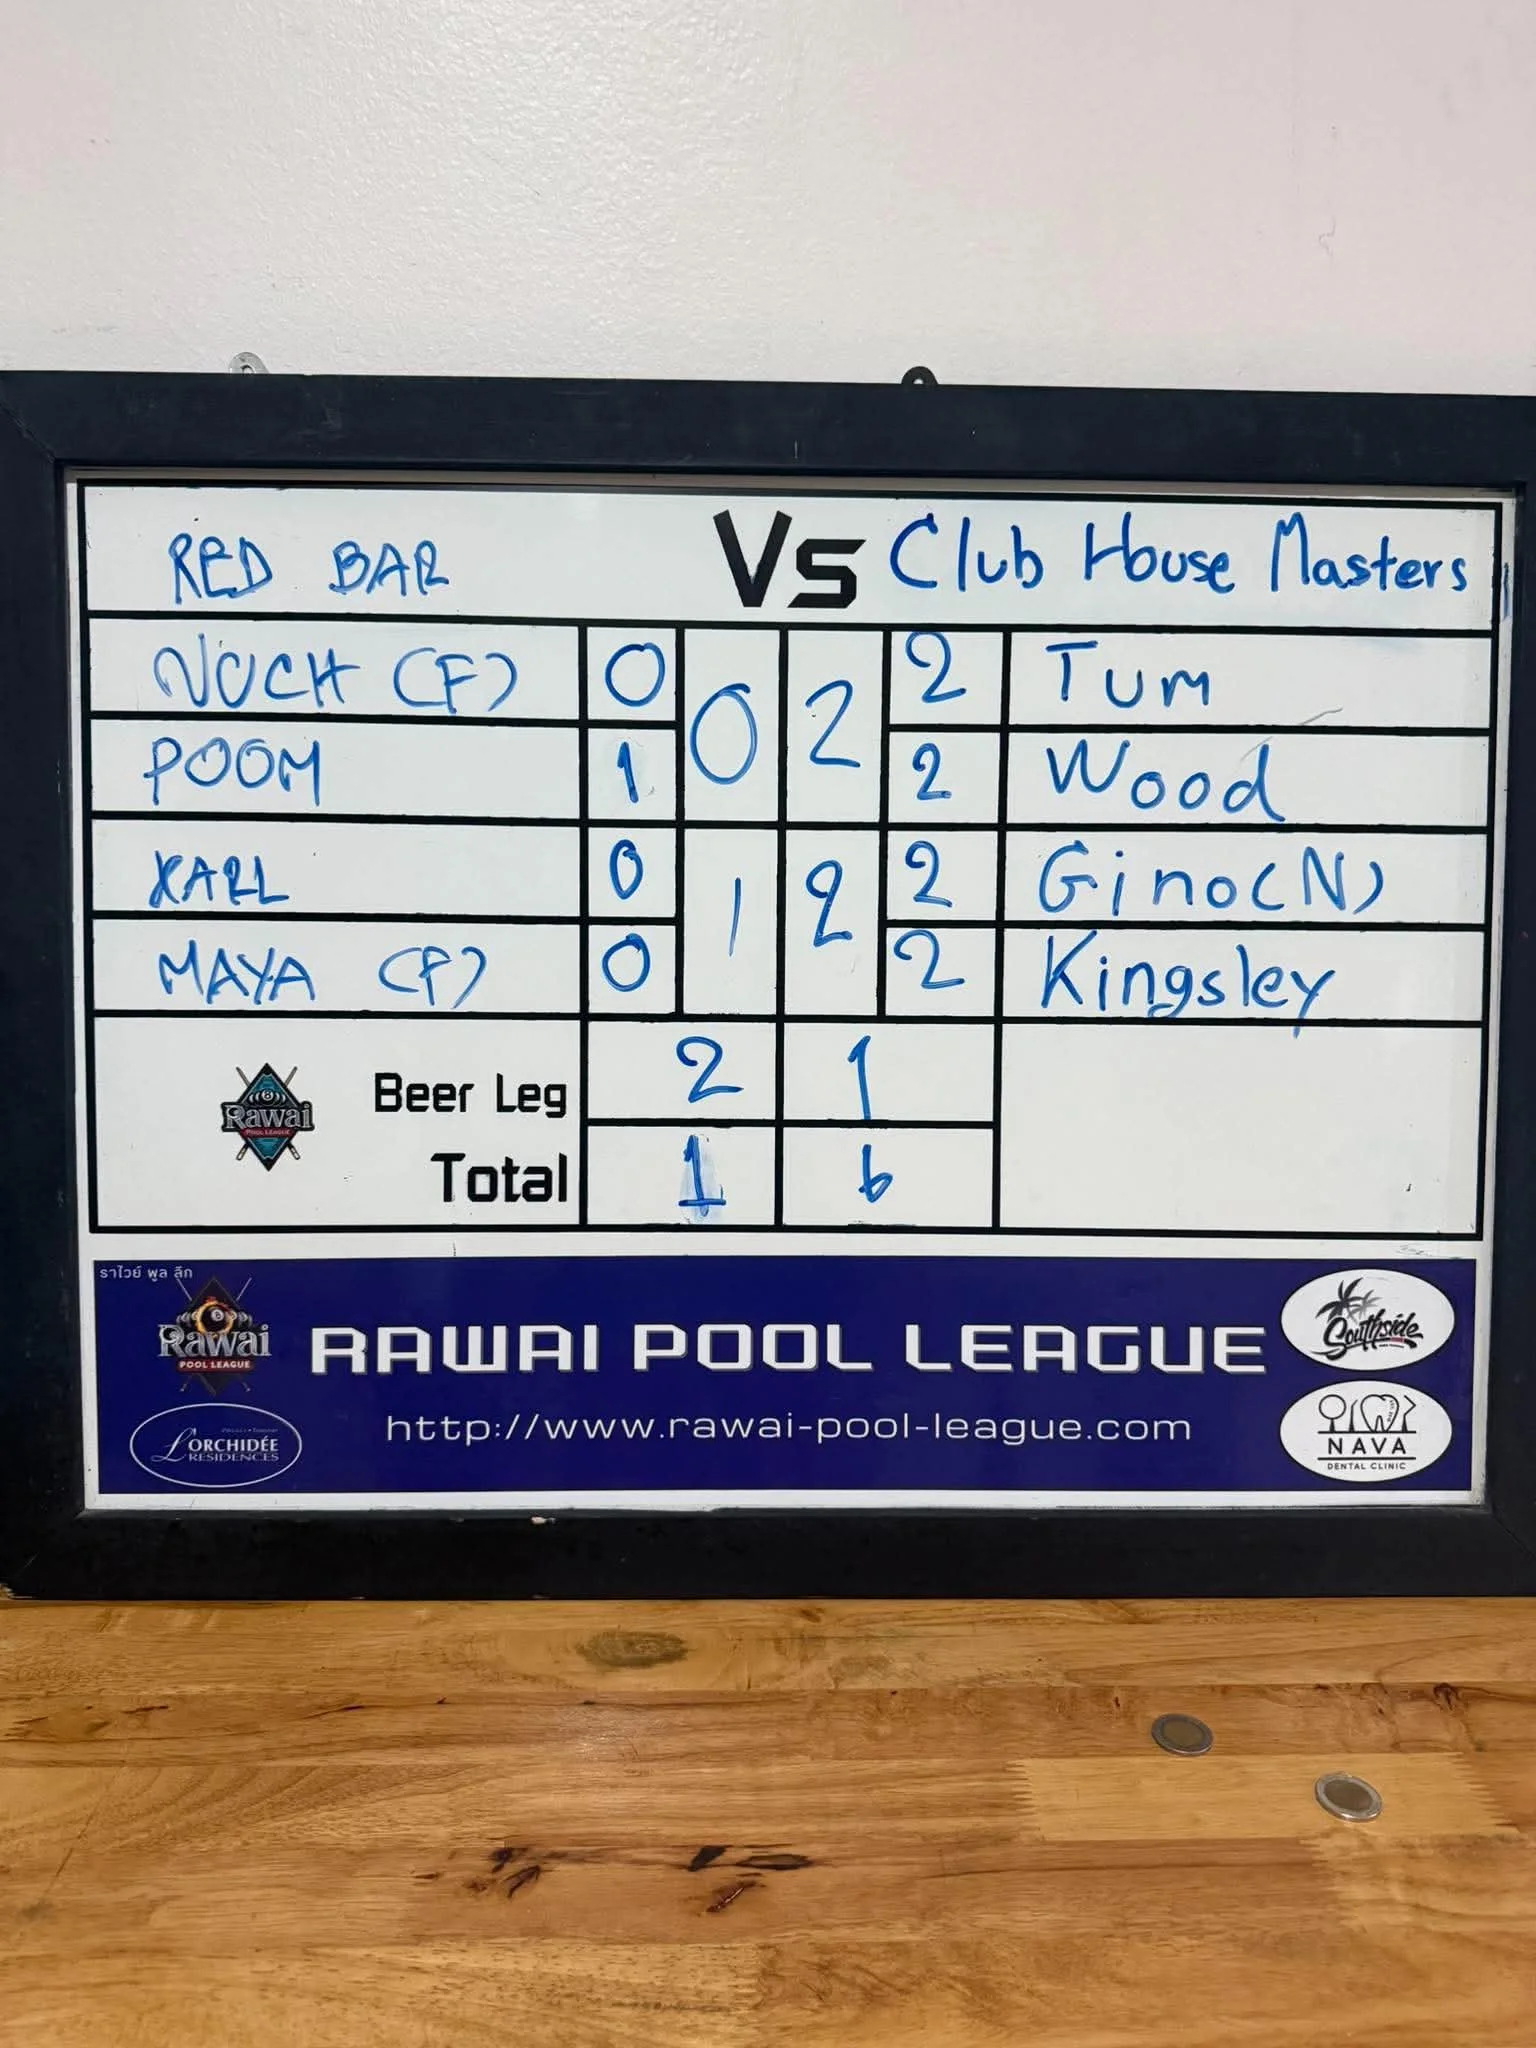 RED BAR Vs Club House Masters
NUCH (F) 0 2 Tum
0 2
POOM 1 2 Wood
KARL 0 2 Gino(N)
1 2
MAYA (F) 0 2 Kingsley
Beer Leg 2 1
Rawai
POOL LEAGUE
Total 1 6
ราไวย์ พูล ลีก
Rawai
POOL LEAGUE
RAWAI POOL LEAGUE
http://www.rawai-pool-league.com
L'ORCHIDÉE
RESIDENCES
Southside
NAVA
DENTAL CLINIC